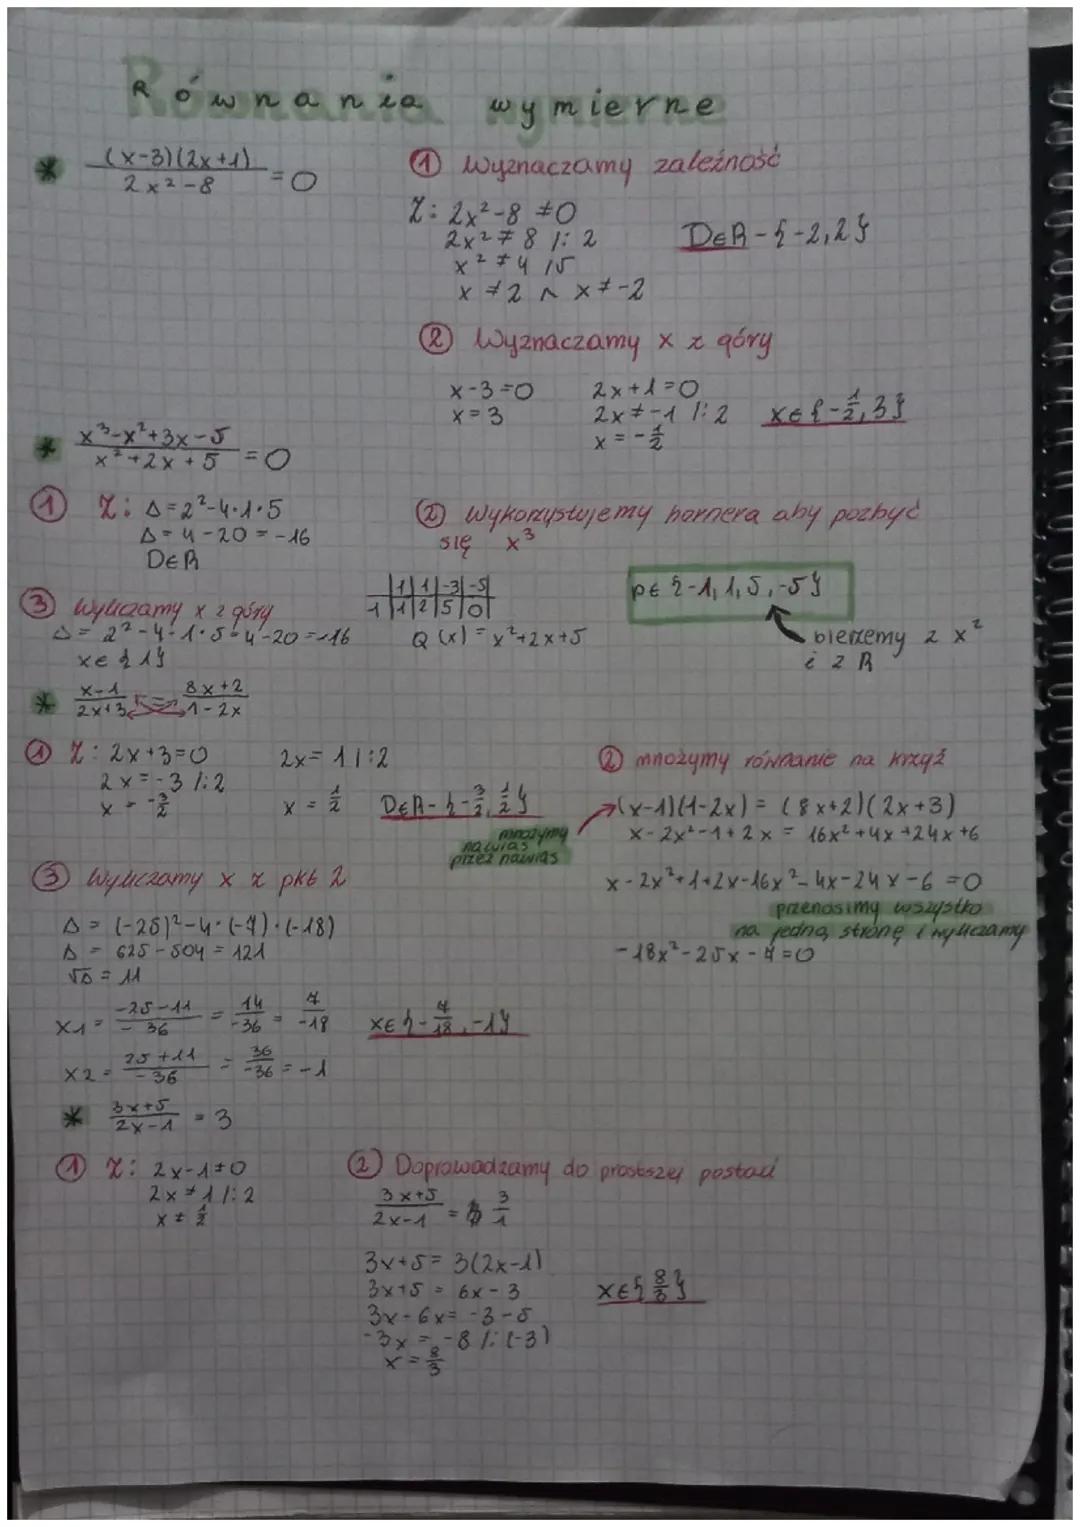 Równania wymierne
* (x-3)(2x+1) / 2x²-8 = 0
① Wyznaczamy zależność
Z: 2x²-8 ≠0
2x² ≠ 8 /: 2
x² ≠ 4 /√
x ≠ 2 ∧ x ≠ -2
D∈R - {-2,2}
② Wyznaczamy x z góry
x-3=0
x = 3
2x+1=0
2x≠-1 /: 2
x = -1/2
x∈{-1/2, 3}
* x³-x²+3x-5 / x²+2x+5 = 0
① Z: Δ=2²-4·1·5
Δ= 4-20 = -16
D∈R
② Wykorzystujemy hornera aby pozbyć
się x³
|1|1|-3|-5
1|1|2|5|0
Q(x) = x²+2x+5
p∈{-1,1,5,-5}
bierzemy z x²
i z R
③ Wyliczamy x z góry
Δ= 2²-4·1·5=4-20=-16
x∈{1}
* x-1 / 2x+3 = 8x+2 / 1-2x
① Z: 2x+3=0
2x=-3 /:2
x = -3/2
2x= 1 /:2
x = 1/2
D∈R-{-3/2, 1/2}
② mnożymy równanie na krzyż
(x-1)(1-2x) = (8x+2)(2x+3)
x-2x²-1+2x = 16x²+4x+24x+6
mnożymy
nawias
przez nawias
x-2x²+1+2x-16x²-4x-24x-6 =0
przenosimy wszystko
na jedną stronę i wyliczamy
-18x²-25x-7=0
③ Wyliczamy x z pkt 2
Δ = (-25)²-4·(-7)·(-18)
Δ = 625-504 = 121
√Δ = 11
x1 = -25-11 / -36 = 14 / -36 = 7 / -18
x∈{-7/18, -1}
x2 = 25+11 / -36 = 36 / -36 = -1
* 3x+5 / 2x-1 = 3
① Z: 2x-1≠0
2x ≠ 1 /: 2
x ≠ 1/2
② Doprowadzamy do prostszej postaci
3x+5 / 2x-1 = 3 / 1
3x+5= 3(2x-1)
3x+5 = 6x-3
3x-6x= -3-5
-3x = -8 /: (-3)
x = 8/3
x∈{8/3}